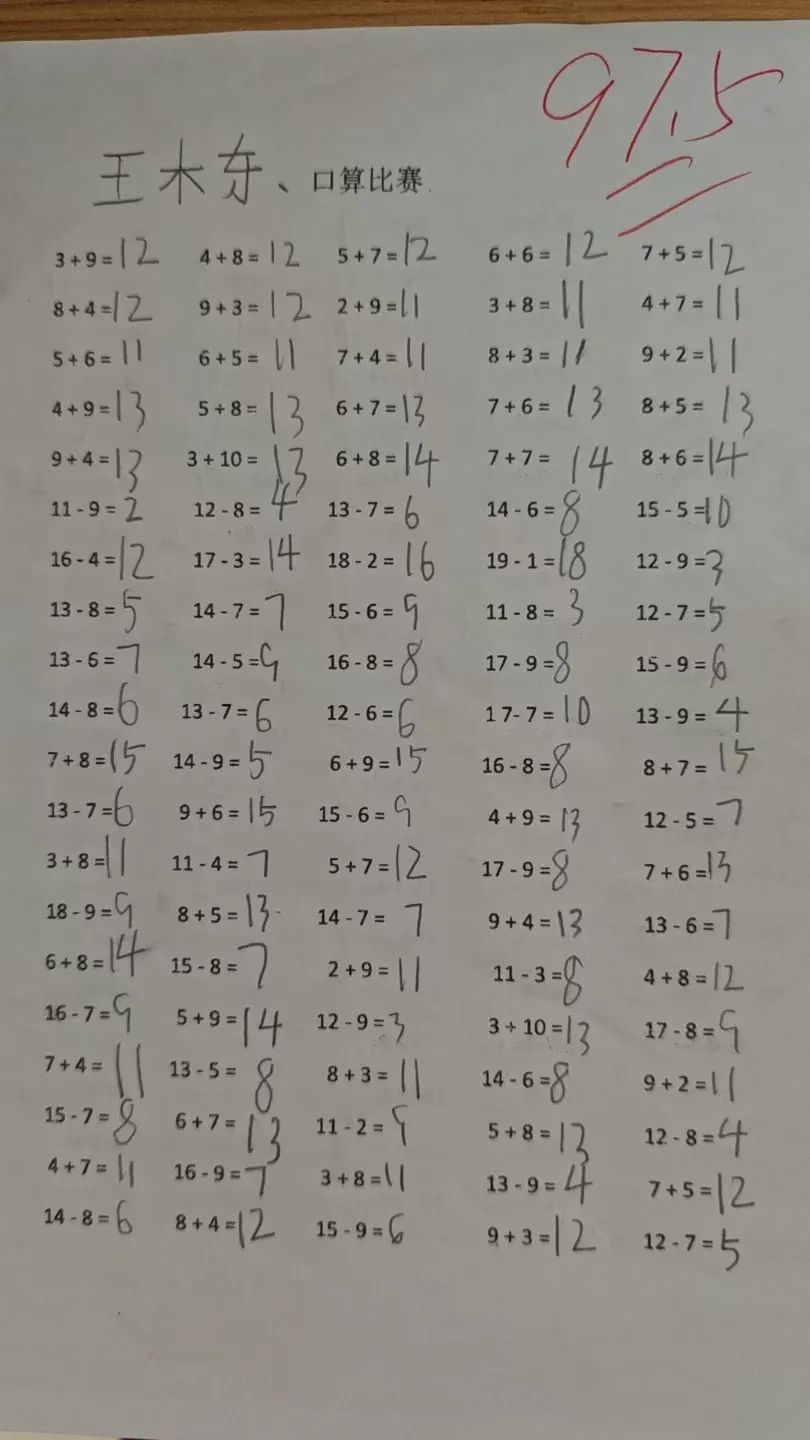 97.5
王木东、口算比赛
3 + 9 = 12 4 + 8 = 12 5 + 7 = 12 6 + 6 = 12 7 + 5 = 12
8 + 4 = 12 9 + 3 = 12 2 + 9 = 11 3 + 8 = 11 4 + 7 = 11
5 + 6 = 11 6 + 5 = 11 7 + 4 = 11 8 + 3 = 11 9 + 2 = 11
4 + 9 = 13 5 + 8 = 13 6 + 7 = 13 7 + 6 = 13 8 + 5 = 13
9 + 4 = 13 3 + 10 = 13 6 + 8 = 14 7 + 7 = 14 8 + 6 = 14
11 - 9 = 2 12 - 8 = 4 13 - 7 = 6 14 - 6 = 8 15 - 5 = 10
16 - 4 = 12 17 - 3 = 14 18 - 2 = 16 19 - 1 = 18 12 - 9 = 3
13 - 8 = 5 14 - 7 = 7 15 - 6 = 9 11 - 8 = 3 12 - 7 = 5
13 - 6 = 7 14 - 5 = 9 16 - 8 = 8 17 - 9 = 8 15 - 9 = 6
14 - 8 = 6 13 - 7 = 6 12 - 6 = 6 1 7- 7 = 10 13 - 9 = 4
7 + 8 = 15 14 - 9 = 5 6 + 9 = 15 16 - 8 = 8 8 + 7 = 15
13 - 7 = 6 9 + 6 = 15 15 - 6 = 9 4 + 9 = 13 12 - 5 = 7
3 + 8 = 11 11 - 4 = 7 5 + 7 = 12 17 - 9 = 8 7 + 6 = 13
18 - 9 = 9 8 + 5 = 13 14 - 7 = 7 9 + 4 = 13 13 - 6 = 7
6 + 8 = 14 15 - 8 = 7 2 + 9 = 11 11 - 3 = 8 4 + 8 = 12
16 - 7 = 9 5 + 9 = 14 12 - 9 = 3 3 + 10 = 13 17 - 8 = 9
7 + 4 = 11 13 - 5 = 8 8 + 3 = 11 14 - 6 = 8 9 + 2 = 11
15 - 7 = 8 6 + 7 = 13 11 - 2 = 9 5 + 8 = 13 12 - 8 = 4
4 + 7 = 11 16 - 9 = 7 3 + 8 = 11 13 - 9 = 4 7 + 5 = 12
14 - 8 = 6 8 + 4 = 12 15 - 9 = 6 9 + 3 = 12 12 - 7 = 5